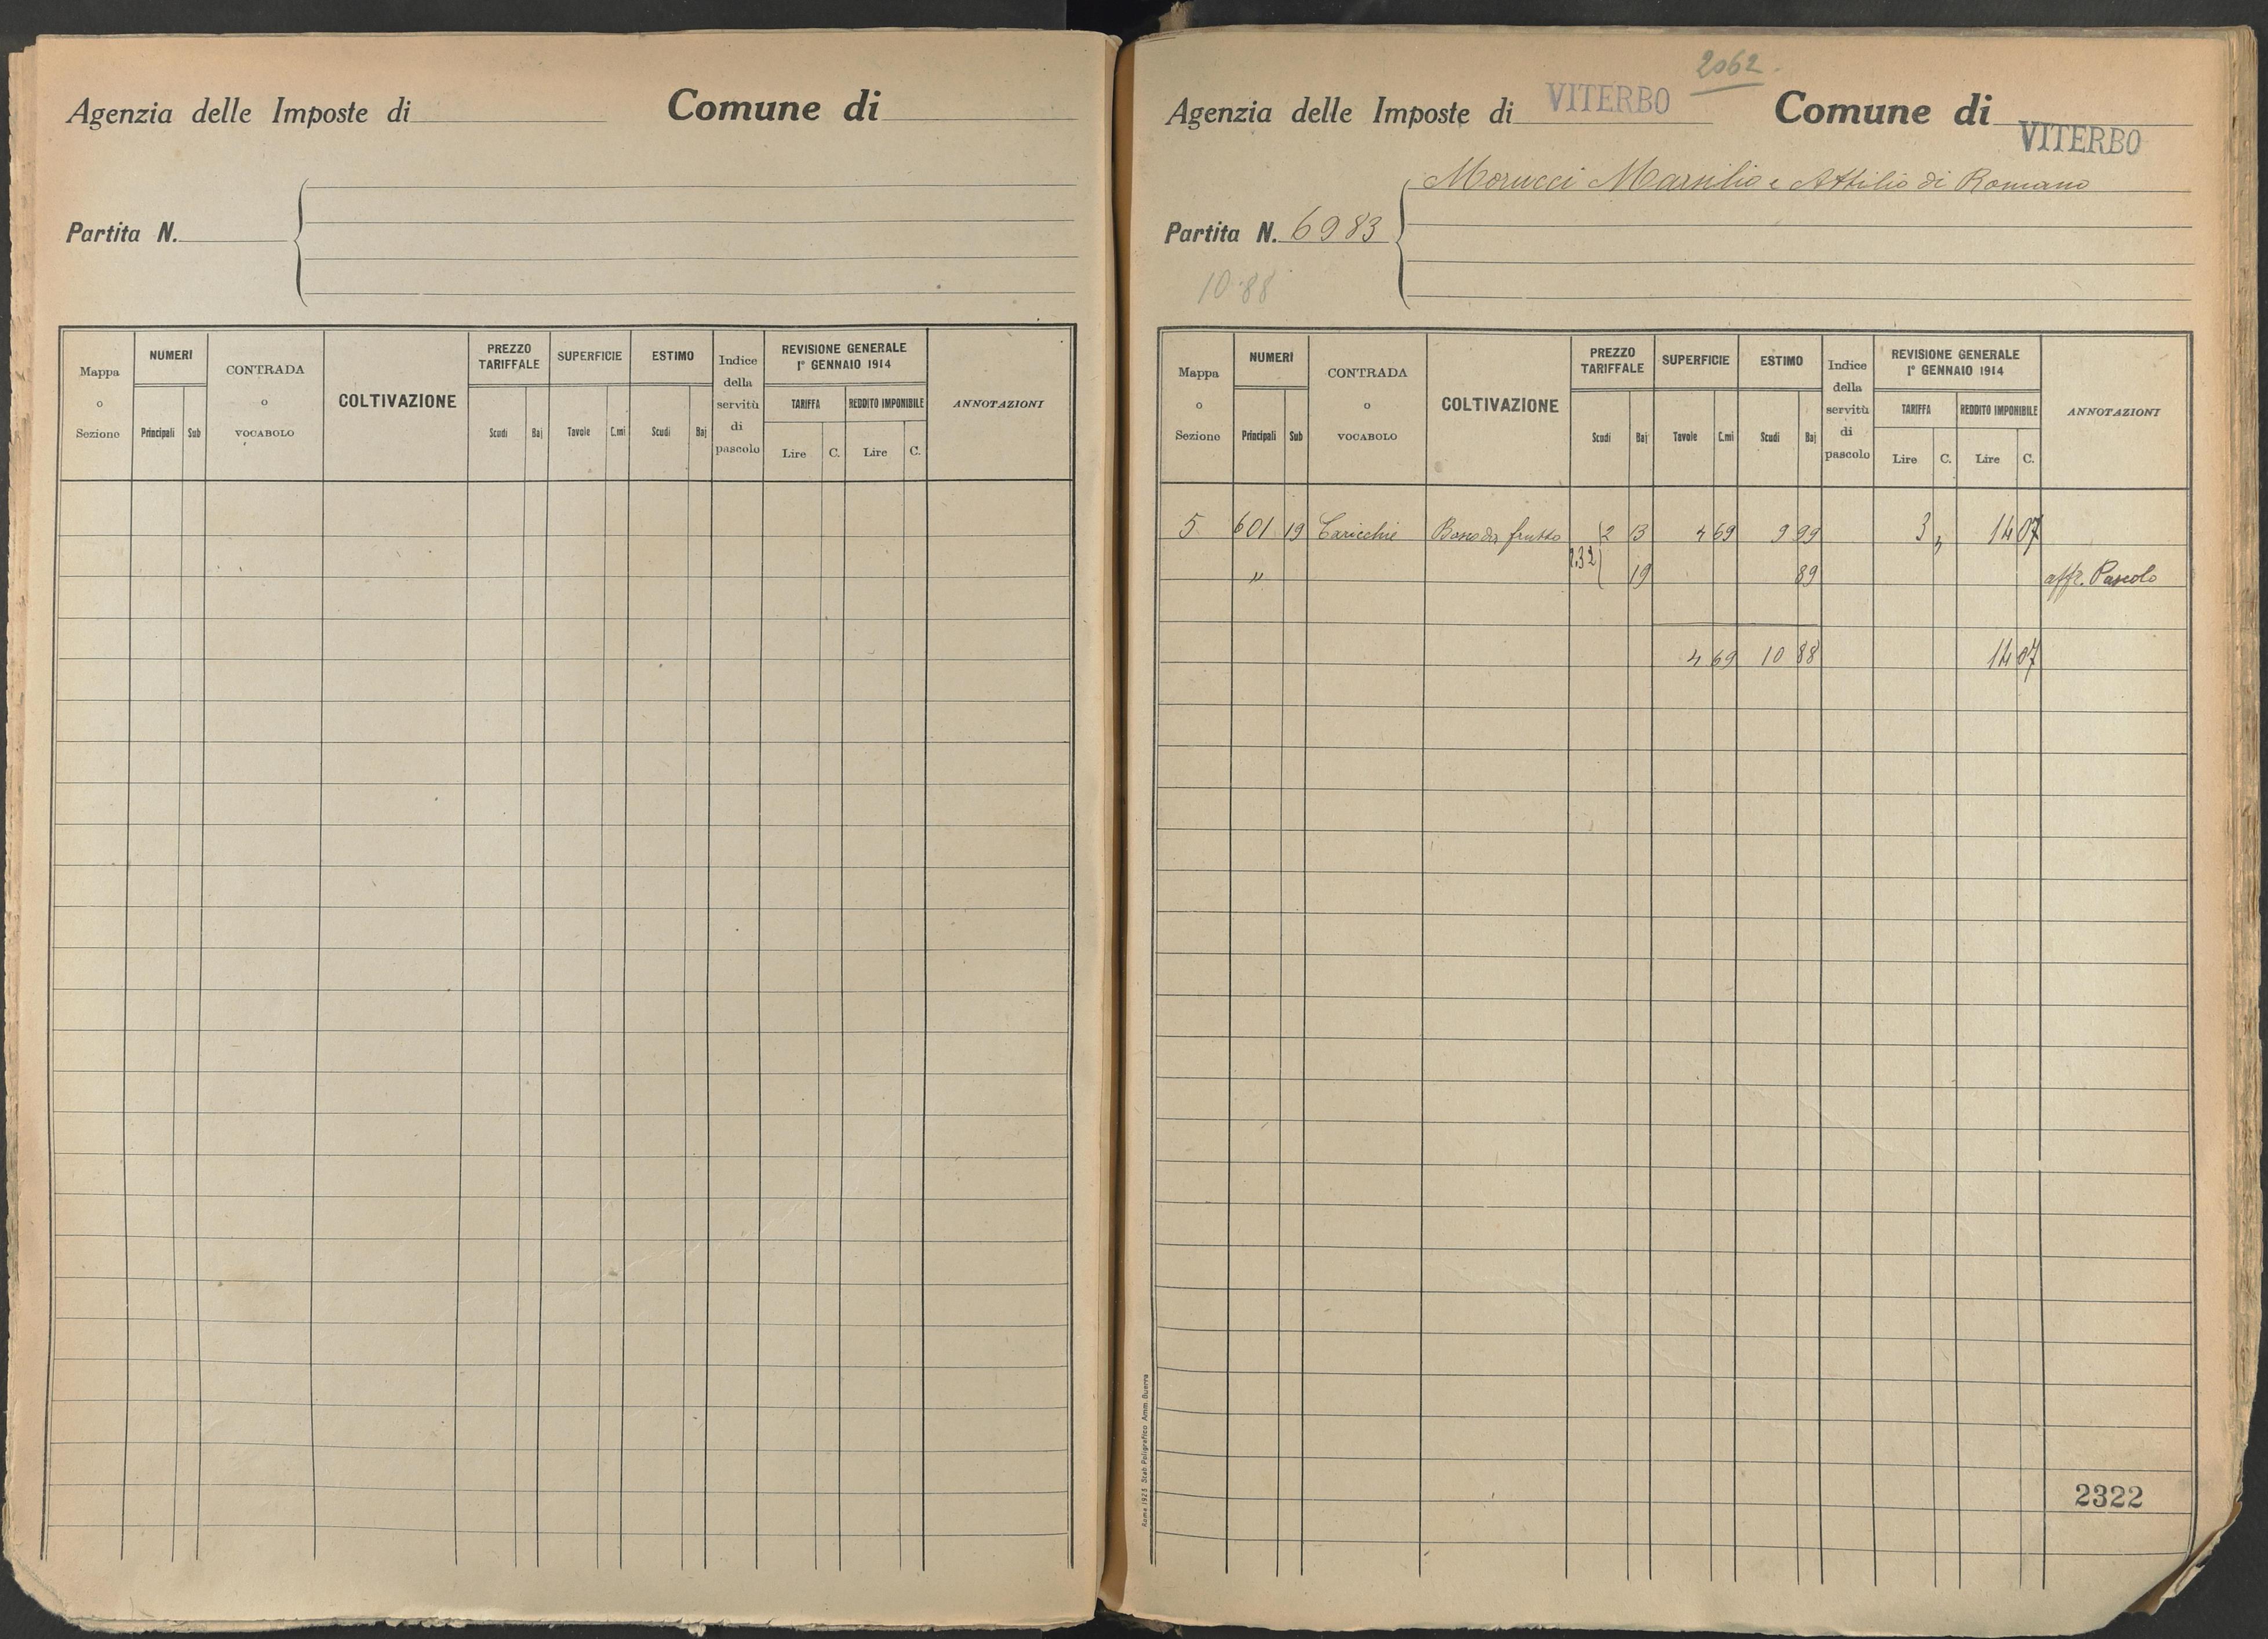 Agenzia delle Imposte di Comune di
Partita N.
Mappa o Sezione NUMERI Principali Sub CONTRADA o VOCABOLO COLTIVAZIONE PREZZO TARIFFALE Scudi Baj SUPERFICIE Tavole C.mi ESTIMO Scudi Baj Indice della servitù di pascolo REVISIONE GENERALE 1° GENNAIO 1914 TARIFFA Lire C. REDDITO IMPONIBILE Lire C. ANNOTAZIONI
2062.
Agenzia delle Imposte di VITERBO Comune di VITERBO
Morucci Marsilio e Attilio di Romano
Partita N. 6983
10.88
Mappa o Sezione NUMERI Principali Sub CONTRADA o VOCABOLO COLTIVAZIONE PREZZO TARIFFALE Scudi Baj SUPERFICIE Tavole C.mi ESTIMO Scudi Baj Indice della servitù di pascolo REVISIONE GENERALE 1° GENNAIO 1914 TARIFFA Lire C. REDDITO IMPONIBILE Lire C. ANNOTAZIONI
5 601 19 Caricchie Bosco da frutto 2 13 4 69 9 99 3 " 14 07
" 2.32 19 89 affr. Pascolo
4 69 10 88 14 07
2322
Roma 1923 Stab. Poligrafico Amm. Guerra